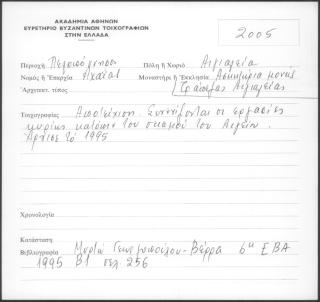 ΑΚΑΔΗΜΙΑ ΑΘΗΝΩΝ
ΕΥΡΕΤΗΡΙΟ ΒΥΖΑΝΤΙΝΩΝ ΤΟΙΧΟΓΡΑΦΙΩΝ
ΣΤΗΝ ΕΛΛΑΔΑ
2005
Περιοχή Πελοπόννησος Πόλη ή Χωριό Αιγιαλεία
Νομός ή Ἐπαρχία Αχαΐας Μοναστήρι ή Ἐκκλησία Ασκηταρια μονής
Ἀρχιτεκτ. τύπος Αιγιαλείας
Τοιχογραφίες Αποτείχιση. Συνεχίζονται οι εργασίες
κυρίως κατόπιν του σεισμού του Αιγίου.
Αρχισε το 1995
Χρονολογία
Κατάσταση
Βιβλιογραφία Μυρτώ Γεωργοπούλου-Βέρρα 6η ΕΒΑ
1995 Β1 σελ. 256